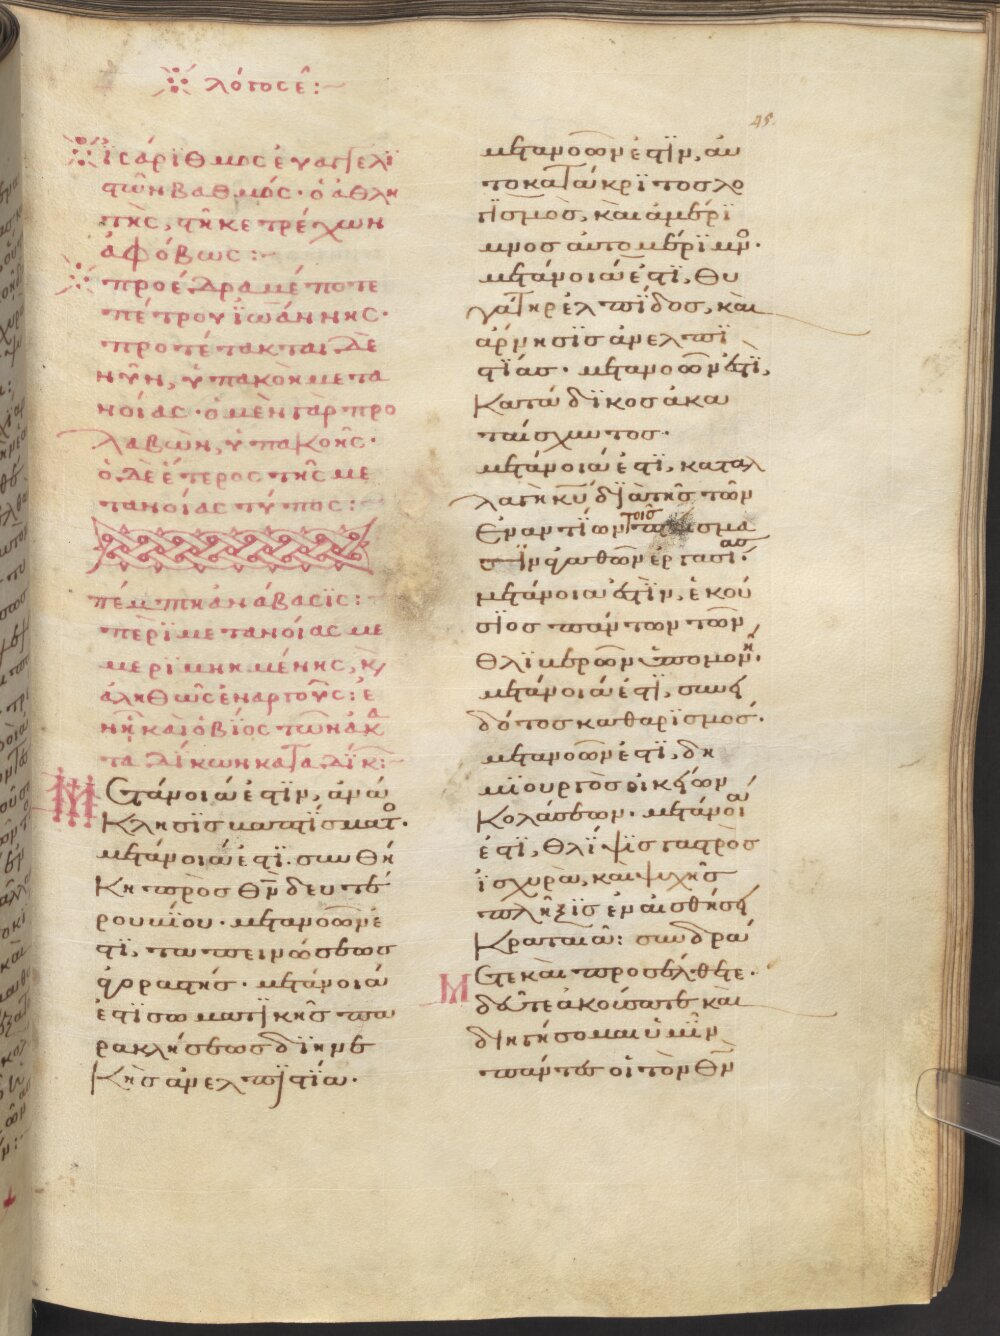 λόγος ε̂:
45
Ἰσάριθμος ἐυαγγελϊ
στῶν βαθμός· ὁ ἀθλη
τὴς, στῆκε τρέχων
ἀφόβως:
προέδραμέ ποτε
πέτρου ϊωάννης·
προτέτακται δὲ
νῦν, ὑπακοὴ μετα
νοίας· ὁ μὲν γὰρ προ
λαβὼν, ὑπακοῆς·
ὁ δὲ ἕτερος τῆς με
τανοίας τύπος:
πέμπτη ἀνάβασϊς:
περὶ μετανοίας με
μεριμνημένης, κ(αὶ)
ἀληθῶς ἐναργοῦς: ἐ
ν ἧ καὶ ὁ βίος τῶν ἁγ
καταδίκων κατάδϊκ:
Μετάνοιά ἐστϊν, ἀνά
κλησϊς βαπτίσματο·
μετάνοιά ἐστϊ, συνθή
κη πρὸς θν̅ δευτέ
ρου βΐου· μετανοῶν ἐ
στϊ, ταπεινώσεως
ἀγοραστής· μετάνοιά
ἐστϊ σωματϊκῆς πα
ρακλήσεως διηνε
κὴς ἀνελπϊστία·
μετανοῶν ἐστϊν, αὐ
τοκατάκρϊτος λο
γϊσμὸς, καὶ ἀμέρϊ
μνος αὐτομέρϊμνο·
μετάνοιά ἐστϊ, θυ
γάτηρ ἐλπΐδος, καὶ
ἄρνησϊς ἀνελπϊ
στΐας· μετανοῶν ἐστΐ,
κατάδϊκος ἀκα
ταίσχυντος·
μετάνοιά ἐστϊ, καταλ
λαγὴ κυ̅ διὰ τῆς τῶν
ἐναντΐων τοῖς
ἀγαθῶν ἐργασίας·
μετάνοιά ἐστϊν, ἑκού
σϊος πάντων τῶν
θλϊβερῶν ὑπομονή·
μετάνοιά ἐστϊ, συνει
δότος καθαρϊσμός·
μετανοῶν ἐστϊ, δη
μϊουργὸς οἰκείων
κολάσεων· μετάνοιά
ἐστϊ, θλΐψϊς γαστρὸς
ϊσχυρὰ, καὶ ψυχῆς
πλῆξϊς ἐν αἰσθήσει
κραταιᾶ: συνδρά
Μετε καὶ προσέλθετε·
δεῦτε ἀκούσατε καὶ
διηγήσομαι ὑμΐν
πάντες οἱ τὸν θν̅